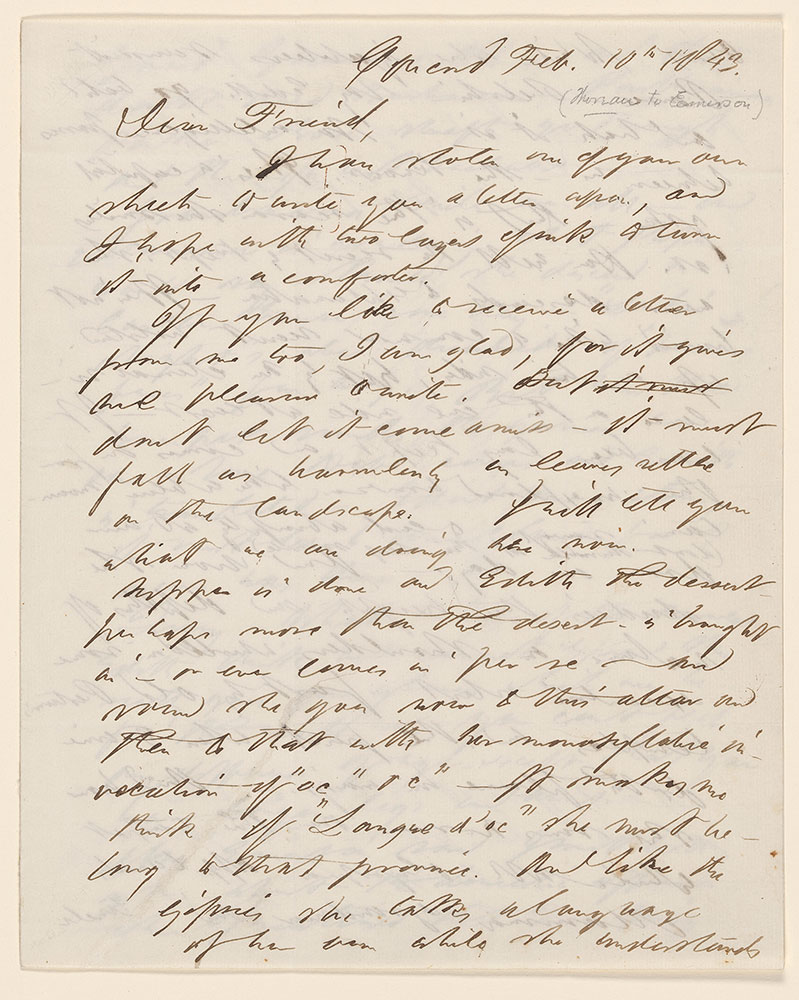 Concord Feb. 10th 1843.
(Thoreau to Emerson)
Dear Friend,
I have stolen one of your own
sheets to write you a letter upon, and
I hope with two layers of ink to turn
it into a comforter.
If you like to receive a letter
from me too, I am glad, for it gives
me pleasure to write. But it must
dont let it come amiss – it must
fall as harmlessly as leaves settle
on the landscape. I will tell you
what we are doing here now.
Supper is done and Edith the dessert –
perhaps more than the desert – is brought
in – or even comes in per se – And
round she goes now to this altar and
then to that with her monosyllabic in-
vocation of "oc" "oc" – It makes me
think of "Langue d'oc" she must be-
long to that province. And like the
gipsies she talks a language
of her own while she understands